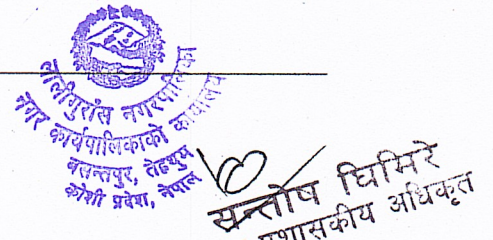 लालीगुराँस नगरपालिका
नगर कार्यपालिकाको कार्यालय
बसन्तपुर, तेह्रथुम
कोशी प्रदेश, नेपाल
सन्तोष घिमिरे
प्रशासकीय अधिकृत